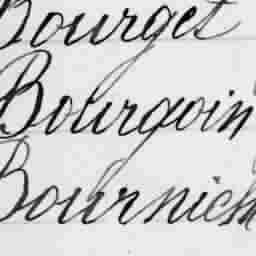 Bourget
Bourgoin
Bournich